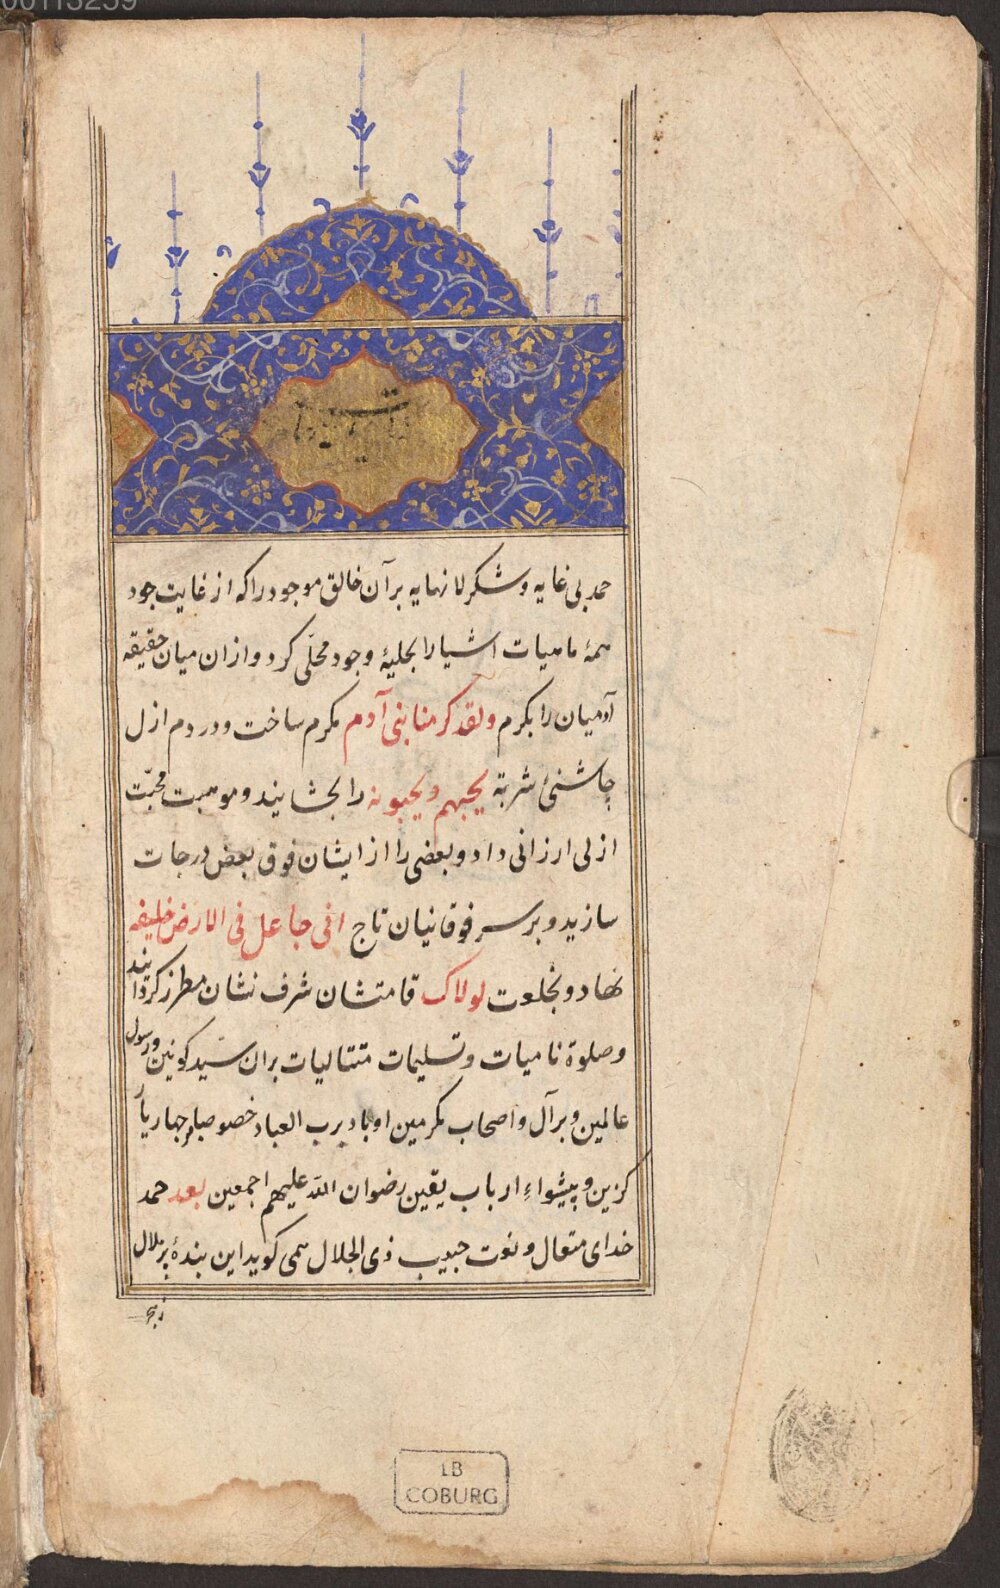 00113259
حمد بی غایه و شکر لا نهایه بر آن خالق موجود را که از غایت جود
همهٔ ماهیات اشیا را بحلیهٔ وجود محلّی کرد و ازان میان حقیقه
آدمیان را بکرم ولقد کرمنا بنی آدم مکرم ساخت و در دم ازل
چاشنیٔ شربة یحبهم و یحبونه را بخشانید و موهبت محبّت
ازلی ارزانی داد و بعضی را از ایشان فوق بعض درجات
سازید و بر سر فوقانیان تاج انی جاعل فی الارض خلیفه
نهاد و بخلعت لولاک قامتشان شرف نشان مطرز کردانید
و صلوة نامیات و تسلیمات متتالیات بران سیّد کونین و رسول
عالمین و بر آل و اصحاب مکرمین او باد برب العباد خصوصا بر چهار یار
کزین و پیشواء ارباب یقین رضوان الله علیهم اجمعین بعد حمد
خدای متعال و نعت حبیب ذی الجلال همی کوید این بندهٔ پر
LB
COBURG